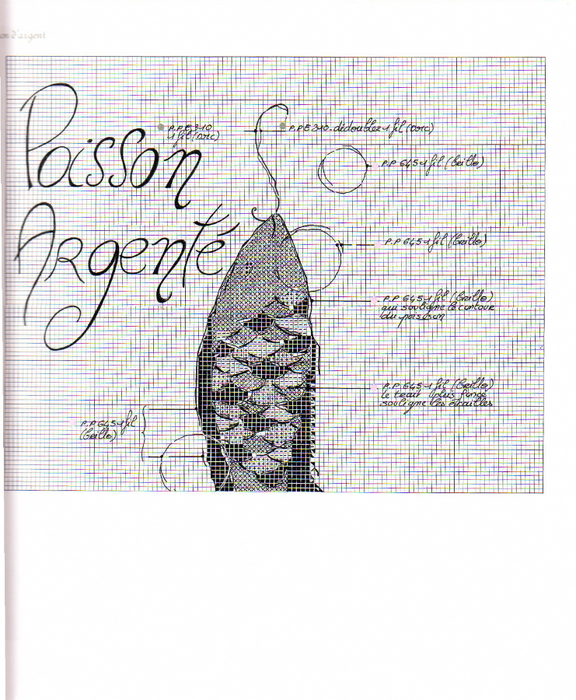 on d'argent
Poisson
Argenté
1 fil (arc)
dédoublez 1 fil (arc)
P.P 645-1 fil (Beille)
P.P 645-1 fil (Beille)
P.P 645-1 fil (Beille)
qui souligne le contour
du poisson
P.P 645-1 fil (Beille)
le trait plus foncé
souligne les écailles
P.P 645-1 fil
(Beille)